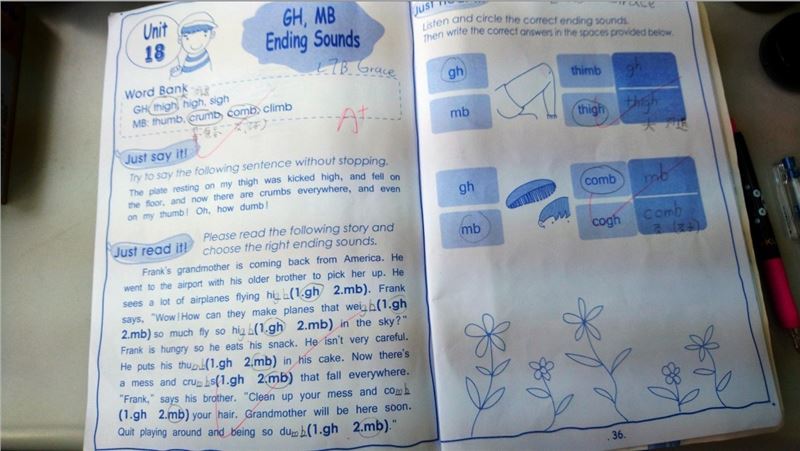 Unit
18
GH, MB
Ending Sounds
L7B Grace
Word Bank
GH: thigh, high, sigh
MB: thumb, crumb, comb, climb
A+
Just say it!
Try to say the following sentence without stopping.
The plate resting on my thigh was kicked high, and fell on
the floor, and now there are crumbs everywhere, and even
on my thumb! Oh, how dumb!
Just read it!
Please read the following story and
choose the right ending sounds.
Frank's grandmother is coming back from America. He
went to the airport with his older brother to pick her up. He
sees a lot of airplanes flying high(1.gh 2.mb). Frank
says, "Wow! How can they make planes that weigh(1.gh
2.mb) so much fly so high(1.gh 2.mb) in the sky?"
Frank is hungry so he eats his snack. He isn't very careful.
He puts his thumb(1.gh 2.mb) in his cake. Now there's
a mess and crumbs(1.gh 2.mb) that fall everywhere.
"Frank," says his brother. "Clean up your mess and comb
(1.gh 2.mb) your hair. Grandmother will be here soon.
Quit playing around and being so dumb(1.gh 2.mb)."
Just
Grace
Listen and circle the correct ending sounds.
Then write the correct answers in the spaces provided below.
gh thimb gh
mb thigh thigh
gh comb mb
mb cogh comb
36